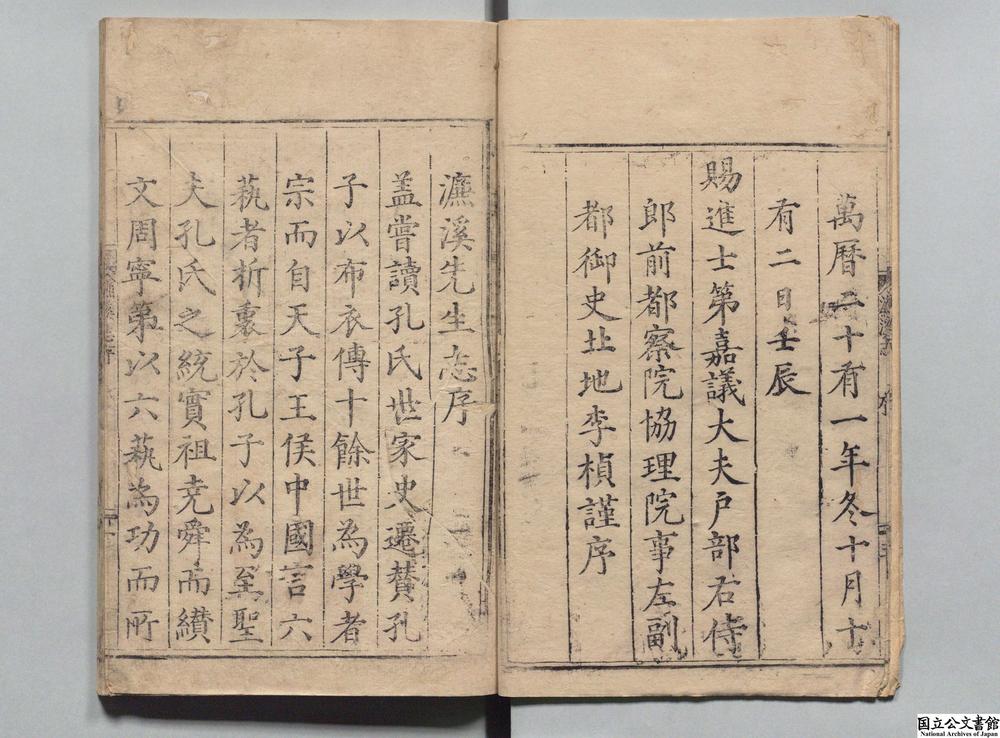 萬曆二十有一年冬十月十
有二日壬辰
賜進士第嘉議大夫户部右侍
郎前都察院協理院事左副
都御史北地李楨謹序
濂溪先生志序
盖嘗讀孔氏世家史遷贊孔
子以布衣傳十餘世為學者
宗而自天子王侯中國言六
蓺者折衷於孔子以為至聖
夫孔氏之統實祖堯舜而纉
文周寧第以六蓺為功而所
国立公文書館
National Archives of Japan